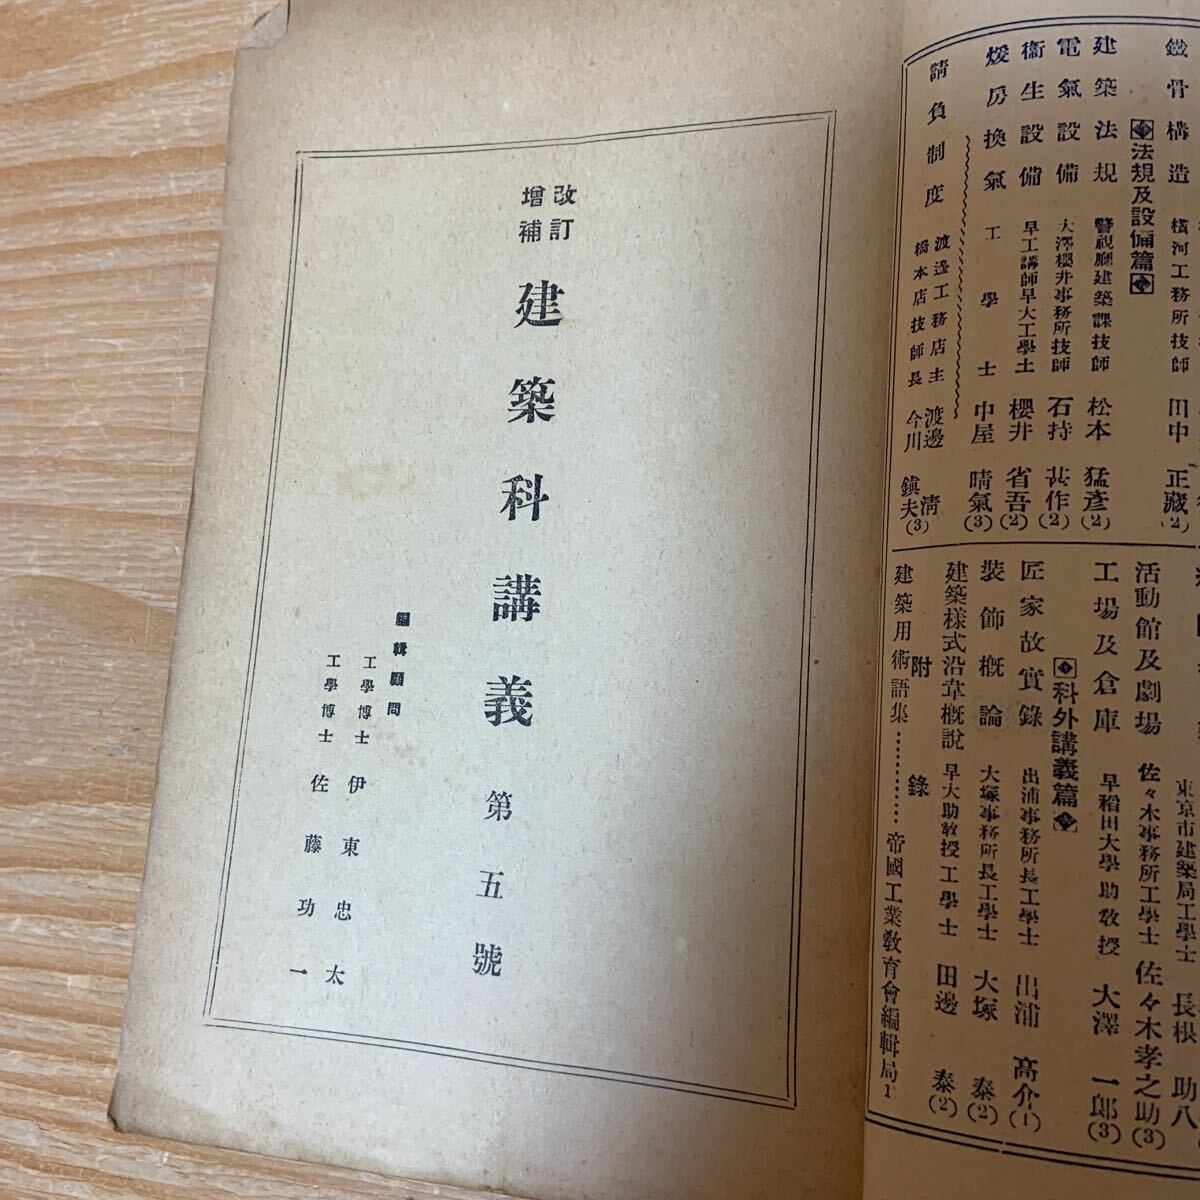 鐵骨構造 橫河工務所技師 田中正藏(2)
法規及設備篇
建築法規 警視廳建築課技師 松本猛彥(2)
電氣設備 大澤櫻井事務所技師 石持甚作(2)
衞生設備 早工講師早大工學士 櫻井省吾(2)
煖房換氣 工學士 中屋晴氣(3)
請負制度 渡邊工務店主 渡邊清
橋本店技師長 今川鎭夫(3)
東京市建築局工學士 長根助八
活動館及劇場 佐々木事務所工學士 佐々木孝之助(3)
工場及倉庫 早稻田大學助敎授 大澤一郎(3)
科外講義篇
匠家故實錄 出浦事務所長工學士 出浦高介(1)
裝飾槪論 大塚事務所長工學士 大塚泰(2)
建築樣式沿革槪說 早大助敎授工學士 田邊泰(2)
附錄
建築用術語集…………帝國工業敎育會編輯局1
改訂
增補
建築科講義 第五號
編輯顧問
工學博士 伊東忠太
工學博士 佐藤功一